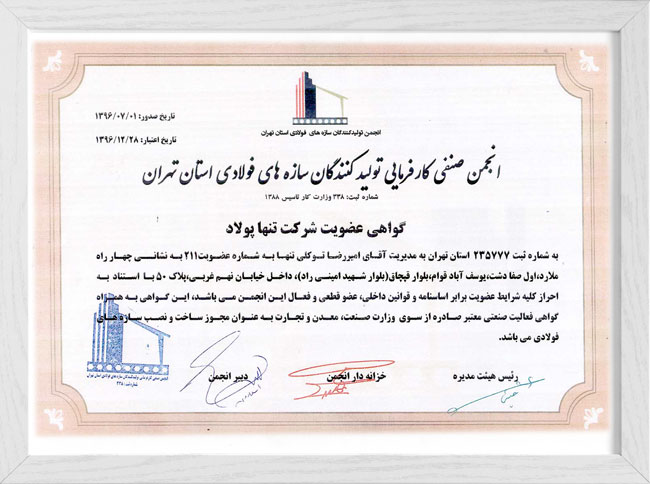 انجمن تولیدکنندگان سازه های فولادی استان تهران
تاریخ صدور: ۱۳۹۶/۰۷/۰۱
تاریخ اعتبار: ۱۳۹۶/۱۲/۲۸
انجمن صنفی کارفرمایی تولید کنندگان سازه های فولادی استان تهران
شماره ثبت: ۳۳۸ وزارت کار تاسیس ۱۳۸۸
گواهی عضویت شرکت تنها پولاد
به شماره ثبت ۲۳۵۷۷۷ استان تهران به مدیریت آقای امیررضا توکلی تنها به شماره عضویت۲۱۱ به نشانی چهار راه
ملارد،اول صفا دشت،یوسف آباد قوام،بلوار قپچاق(بلوار شهید امینی راد)، داخل خیابان نهم غربی،پلاک ۵۰ با استناد به
احراز کلیه شرایط عضویت برابر اساسنامه و قوانین داخلی، عضو قطعی و فعال این انجمن می باشد، این گواهی به همراه
گواهی فعالیت صنعتی معتبر صادره از سوی وزارت صنعت، معدن و تجارت به عنوان مجوز ساخت و نصب سازه های
فولادی می باشد.
رئیس هیئت مدیره
خزانه دار انجمن
دبیر انجمن